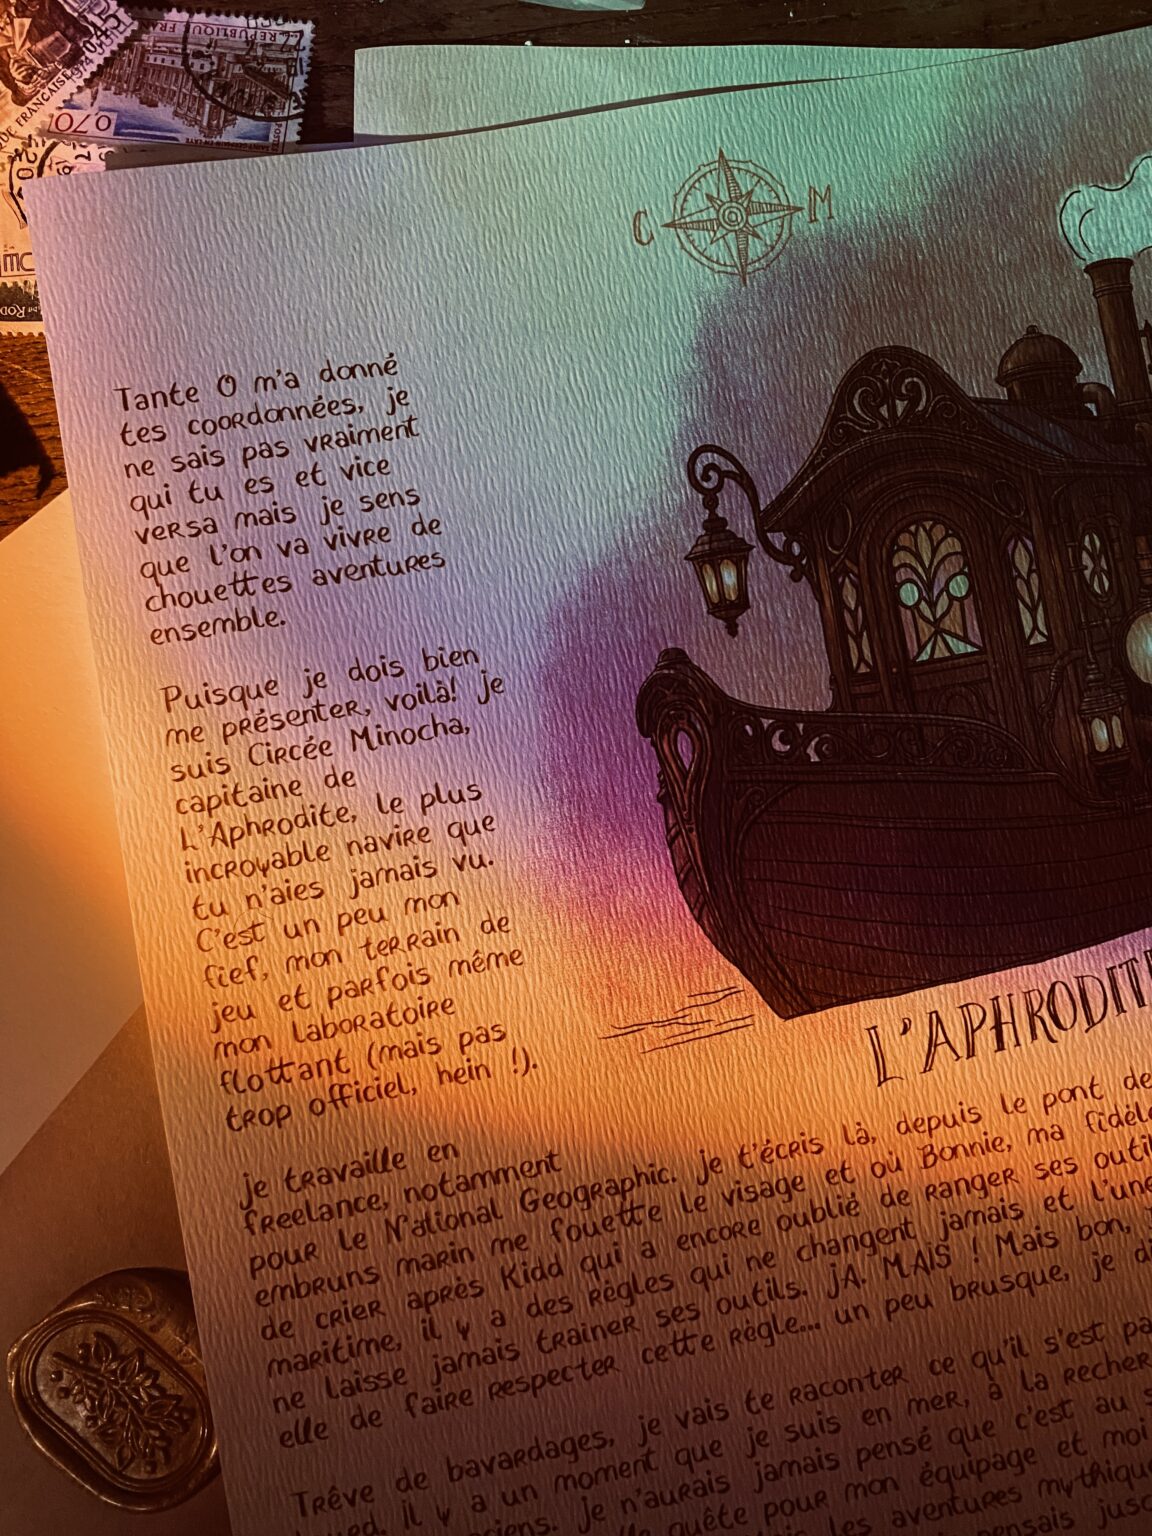 RÉPUBLIQUE FRA
0,70
SAINT-GERMAIN-EN-LAYE
POSTES
FRANÇAISE
1974
0,45
C M
Tante O m'a donné
tes coordonnées, je
ne sais pas vraiment
qui tu es et vice
versa mais je sens
que l'on va vivre de
chouettes aventures
ensemble.
Puisque je dois bien
me présenter, voilà! je
suis Circée Minocha,
capitaine de
L'Aphrodite, le plus
incroyable navire que
tu n'aies jamais vu.
C'est un peu mon
fief, mon terrain de
jeu et parfois même
mon laboratoire
flottant (mais pas
trop officiel, hein !).
L'APHRODITE
je travaille en
freelance, notamment
pour le National Geographic. je t'écris là, depuis le pont de
embruns marin me fouette le visage et où Bonnie, ma fidèle
de crier après Kidd qui a encore oublié de ranger ses outil
maritime, il y a des règles qui ne changent jamais et l'une
ne laisse jamais trainer ses outils. jA. MAIS ! Mais bon,
elle de faire respecter cette règle... un peu brusque, je di
Trêve de bavardages, je vais te raconter ce qu'il s'est pa
il y a un moment que je suis en mer, à la recher
je n'aurais jamais pensé que c'est au
quête pour mon équipage et moi
les aventures mythique